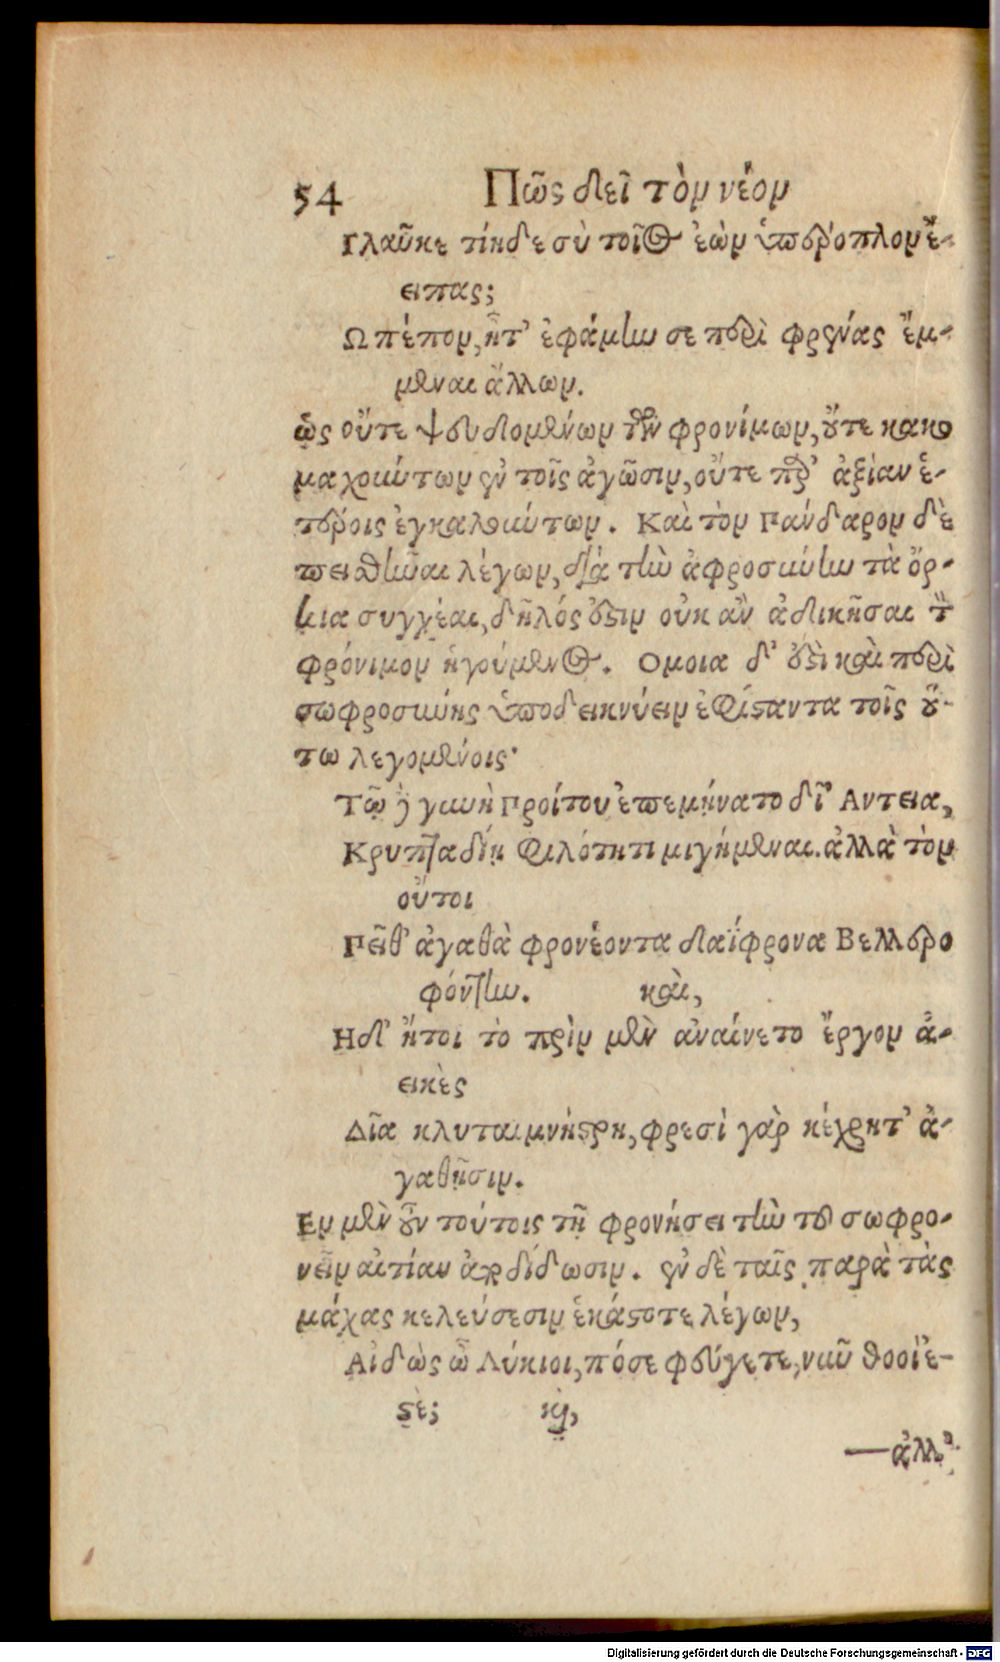 54 Πῶς δεῖ τὸν νέον
Γλαῦκε τίηδε σὺ τοῖος ἐὼν ὑπέροπλον ἔ-
ειπας;
Ω πέπον, ἦτ' ἐφάμην σε περὶ φρένας ἔμ-
μεναι ἄλλων.
ὡς οὔτε ψευδομένων τῶν φρονίμων, οὔτε κακο
μαχούντων ἐν τοῖς ἀγῶσιν, οὔτε παρ' ἀξίαν ἑ-
τέροις ἐγκαλούντων. Καὶ τὸν Πάνδαρον δὲ
πεισθῆναι λέγων, διὰ τὴν ἀφροσύνην τὰ ὅρ-
κια συγχέαι, δῆλός ἐστιν οὐκ ἂν ἀδικῆσαι τὸν
φρόνιμον ἡγούμενος. Ομοια δ' ἐστὶ καὶ περὶ
σωφροσύνης ὑποδεικνύειν ἐφίσταντα τοῖς οὕ-
τω λεγομένοις·
Τῷ δὲ γυνὴ Προίτου ἐπεμήνατο δῖ' Αντεια,
Κρυπταδίῃ φιλότητι μιγήμεναι. ἀλλὰ τὸν
οὔτοι
Πεῖθ' ἀγαθὰ φρονέοντα δαΐφρονα Βελλερο
φόντην. καὶ,
Ηδ' ἤτοι τὸ πρὶν μὲν ἀναίνετο ἔργον ἀ-
εικὲς
Δῖα κλυταιμνήστρη, φρεσὶ γὰρ κέχρητ' ἀ-
γαθῇσιν.
Εν μὲν οὖν τούτοις τῇ φρονήσει τὴν τοῦ σωφρο-
νεῖν αἰτίαν ἀποδίδωσιν. ἐν δὲ ταῖς παρὰ τὰς
μάχας κελεύσεσιν ἑκάστοτε λέγων,
Αἰδὼς ὦ Λύκιοι, πόσε φεύγετε, νῦν θοοὶ ἐ-
στὲ; καὶ,
—ἀλλ'
Digitalisierung gefördert durch die Deutsche Forschungsgemeinschaft - DFG